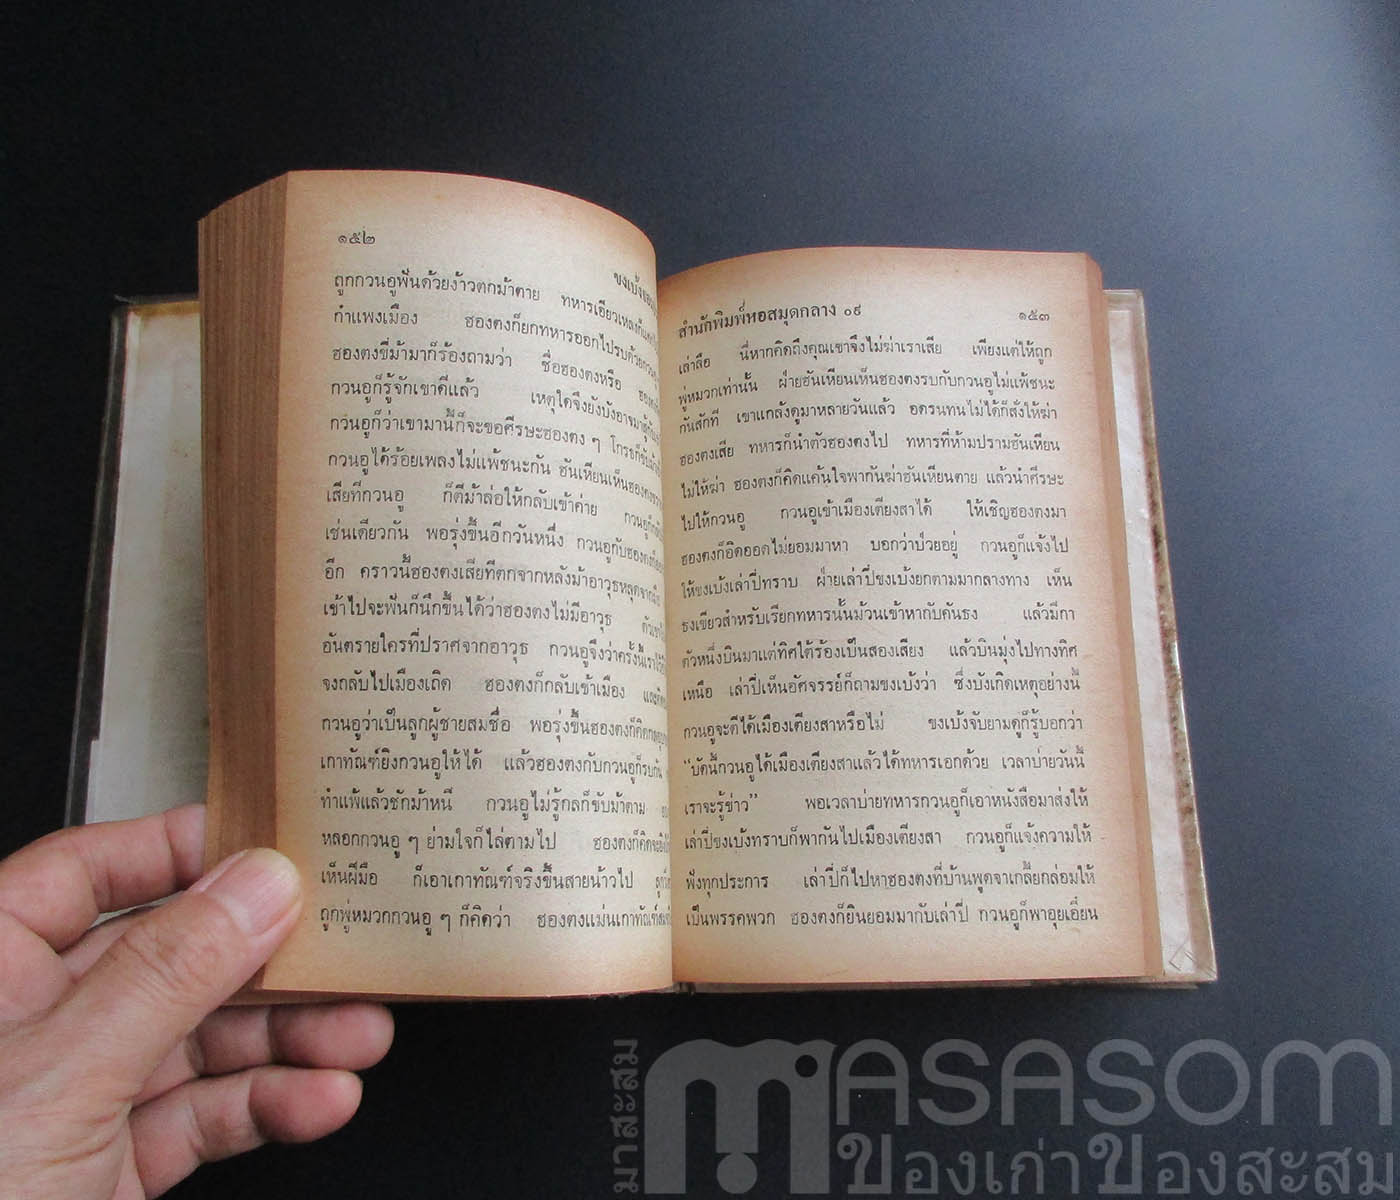 ๑๕๒
ขงเบ้ง
ถูกกวนอูฟันด้วยง้าวตกม้าตาย ทหารเอียวเหลง
กำแพงเมือง ฮองตงก็ยกทหารออกไปรบด้วยกวนอู
ฮองตงขี่ม้ามาก็ร้องถามว่า ชื่อฮองตงหรือ
กวนอูก็รู้จักเขาดีแล้ว เหตุใดจึงยังบังอาจมา
กวนอูก็ว่าเขามานี้ก็จะขอศีรษะฮองตง ๆ โกรธก็ขับม้า
กวนอูได้ร้อยเพลงไม่แพ้ชนะกัน ฮันเหียนเห็นฮองตง
เสียทีกวนอู ก็ตีม้าล่อให้กลับเข้าค่าย กวนอูก็
เช่นเดียวกัน พอรุ่งขึ้นอีกวันหนึ่ง กวนอูกับฮองตง
อีก คราวนี้ฮองตงเสียทีตกจากหลังม้าอาวุธหลุดจากมือ
เข้าไปจะฟันก็นึกขึ้นได้ว่าฮองตงไม่มีอาวุธ
อันตรายใครที่ปราศจากอาวุธ กวนอูจึงว่าครั้งนี้เราไว้
จงกลับไปเมืองเถิด ฮองตงก็กลับเข้าเมือง
กวนอูว่าเป็นลูกผู้ชายสมชื่อ พอรุ่งขึ้นฮองตงก็คิด
เกาทัณฑ์ยิงกวนอูให้ได้ แล้วฮองตงกับกวนอูก็รบกัน
ทำแพ้แล้วชักม้าหนี กวนอูไม่รู้กลก็ขับม้าตาม
หลอกกวนอู ๆ ย่ามใจก็ไล่ตามไป ฮองตงก็คิดจะ
เห็นฝีมือ ก็เอาเกาทัณฑ์จริงขึ้นสายน้าวไป
ถูกพู่หมวกกวนอู ๆ ก็คิดว่า ฮองตงแม่นเกาทัณฑ์
สำนักพิมพ์หอสมุดกลาง ๐๙ ๑๕๓
เล่าลือ นี่หากคิดถึงคุณเขาจึงไม่ฆ่าเราเสีย เพียงแต่ให้ถูก
พู่หมวกเท่านั้น ฝ่ายฮันเหียนเห็นฮองตงรบกับกวนอูไม่แพ้ชนะ
กันสักที เขาแกล้งดูมาหลายวันแล้ว อดรนทนไม่ได้ก็สั่งให้ฆ่า
ฮองตงเสีย ทหารก็นำตัวฮองตงไป ทหารที่ห้ามปรามฮันเหียน
ไม่ให้ฆ่า ฮองตงก็คิดแค้นใจพากันฆ่าฮันเหียนตาย แล้วนำศีรษะ
ไปให้กวนอู กวนอูเข้าเมืองเตียงสาได้ ให้เชิญฮองตงมา
ฮองตงก็อิดออดไม่ยอมมาหา บอกว่าป่วยอยู่ กวนอูก็แจ้งไป
ให้ขงเบ้งเล่าปี่ทราบ ฝ่ายเล่าปี่ขงเบ้งยกตามมากลางทาง เห็น
ธงเขียวสำหรับเรียกทหารนั้นม้วนเข้าหากับคันธง แล้วมีกา
ตัวหนึ่งบินมาแต่ทิศใต้ร้องเป็นสองเสียง แล้วบินมุ่งไปทางทิศ
เหนือ เล่าปี่เห็นอัศจรรย์ก็ถามขงเบ้งว่า ซึ่งบังเกิดเหตุอย่างนี้
กวนอูจะตีได้เมืองเตียงสาหรือไม่ ขงเบ้งจับยามดูก็รู้บอกว่า
“บัดนี้กวนอูได้เมืองเตียงสาแล้วได้ทหารเอกด้วย เวลาบ่ายวันนี้
เราจะรู้ข่าว” พอเวลาบ่ายทหารกวนอูก็เอาหนังสือมาส่งให้
เล่าปี่ขงเบ้งทราบก็พากันไปเมืองเตียงสา กวนอูก็แจ้งความให้
ฟังทุกประการ เล่าปี่ก็ไปหาฮองตงที่บ้านพูดจาเกลี้ยกล่อมให้
เป็นพรรคพวก ฮองตงก็ยินยอมมากับเล่าปี่ กวนอูก็พาอุยเอี๋ยน
มาสะสม
masasom
ของเก่าของสะสม